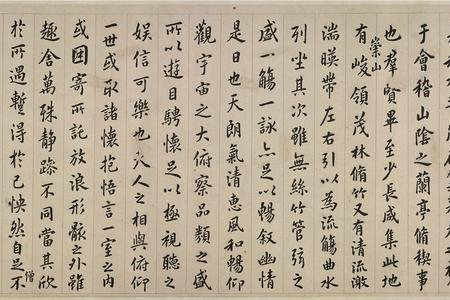 于會稽山陰之蘭亭脩稧事
也羣賢畢至少長咸集此地
有崇山峻領茂林脩竹又有清流激
湍暎帶左右引以為流觴曲水
列坐其次雖無絲竹管弦之
盛一觴一詠亦足以暢叙幽情
是日也天朗氣清惠風和暢仰
觀宇宙之大俯察品類之盛
所以遊目騁懷足以極視聽之
娛信可樂也夫人之相與俯仰
一世或取諸懷抱悟言一室之內
或因寄所託放浪形骸之外雖
趣舍萬殊靜躁不同當其欣
僧
於所遇暫得於己怏然自足不